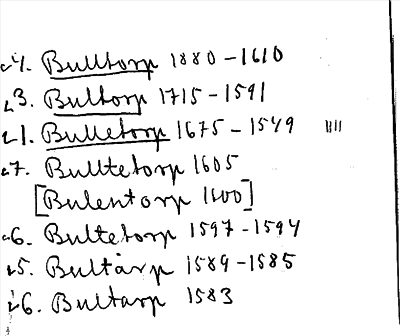 4. Bulltorp 1880-1610
3. Bultorp 1715-1591
1. Bulletorp 1675-1549
7. Bulltetorp 1605
[Bulentorp 1600]
6. Bultetorp 1597-1594
5. Bultarp 1589-1585
6. Bultarp 1583